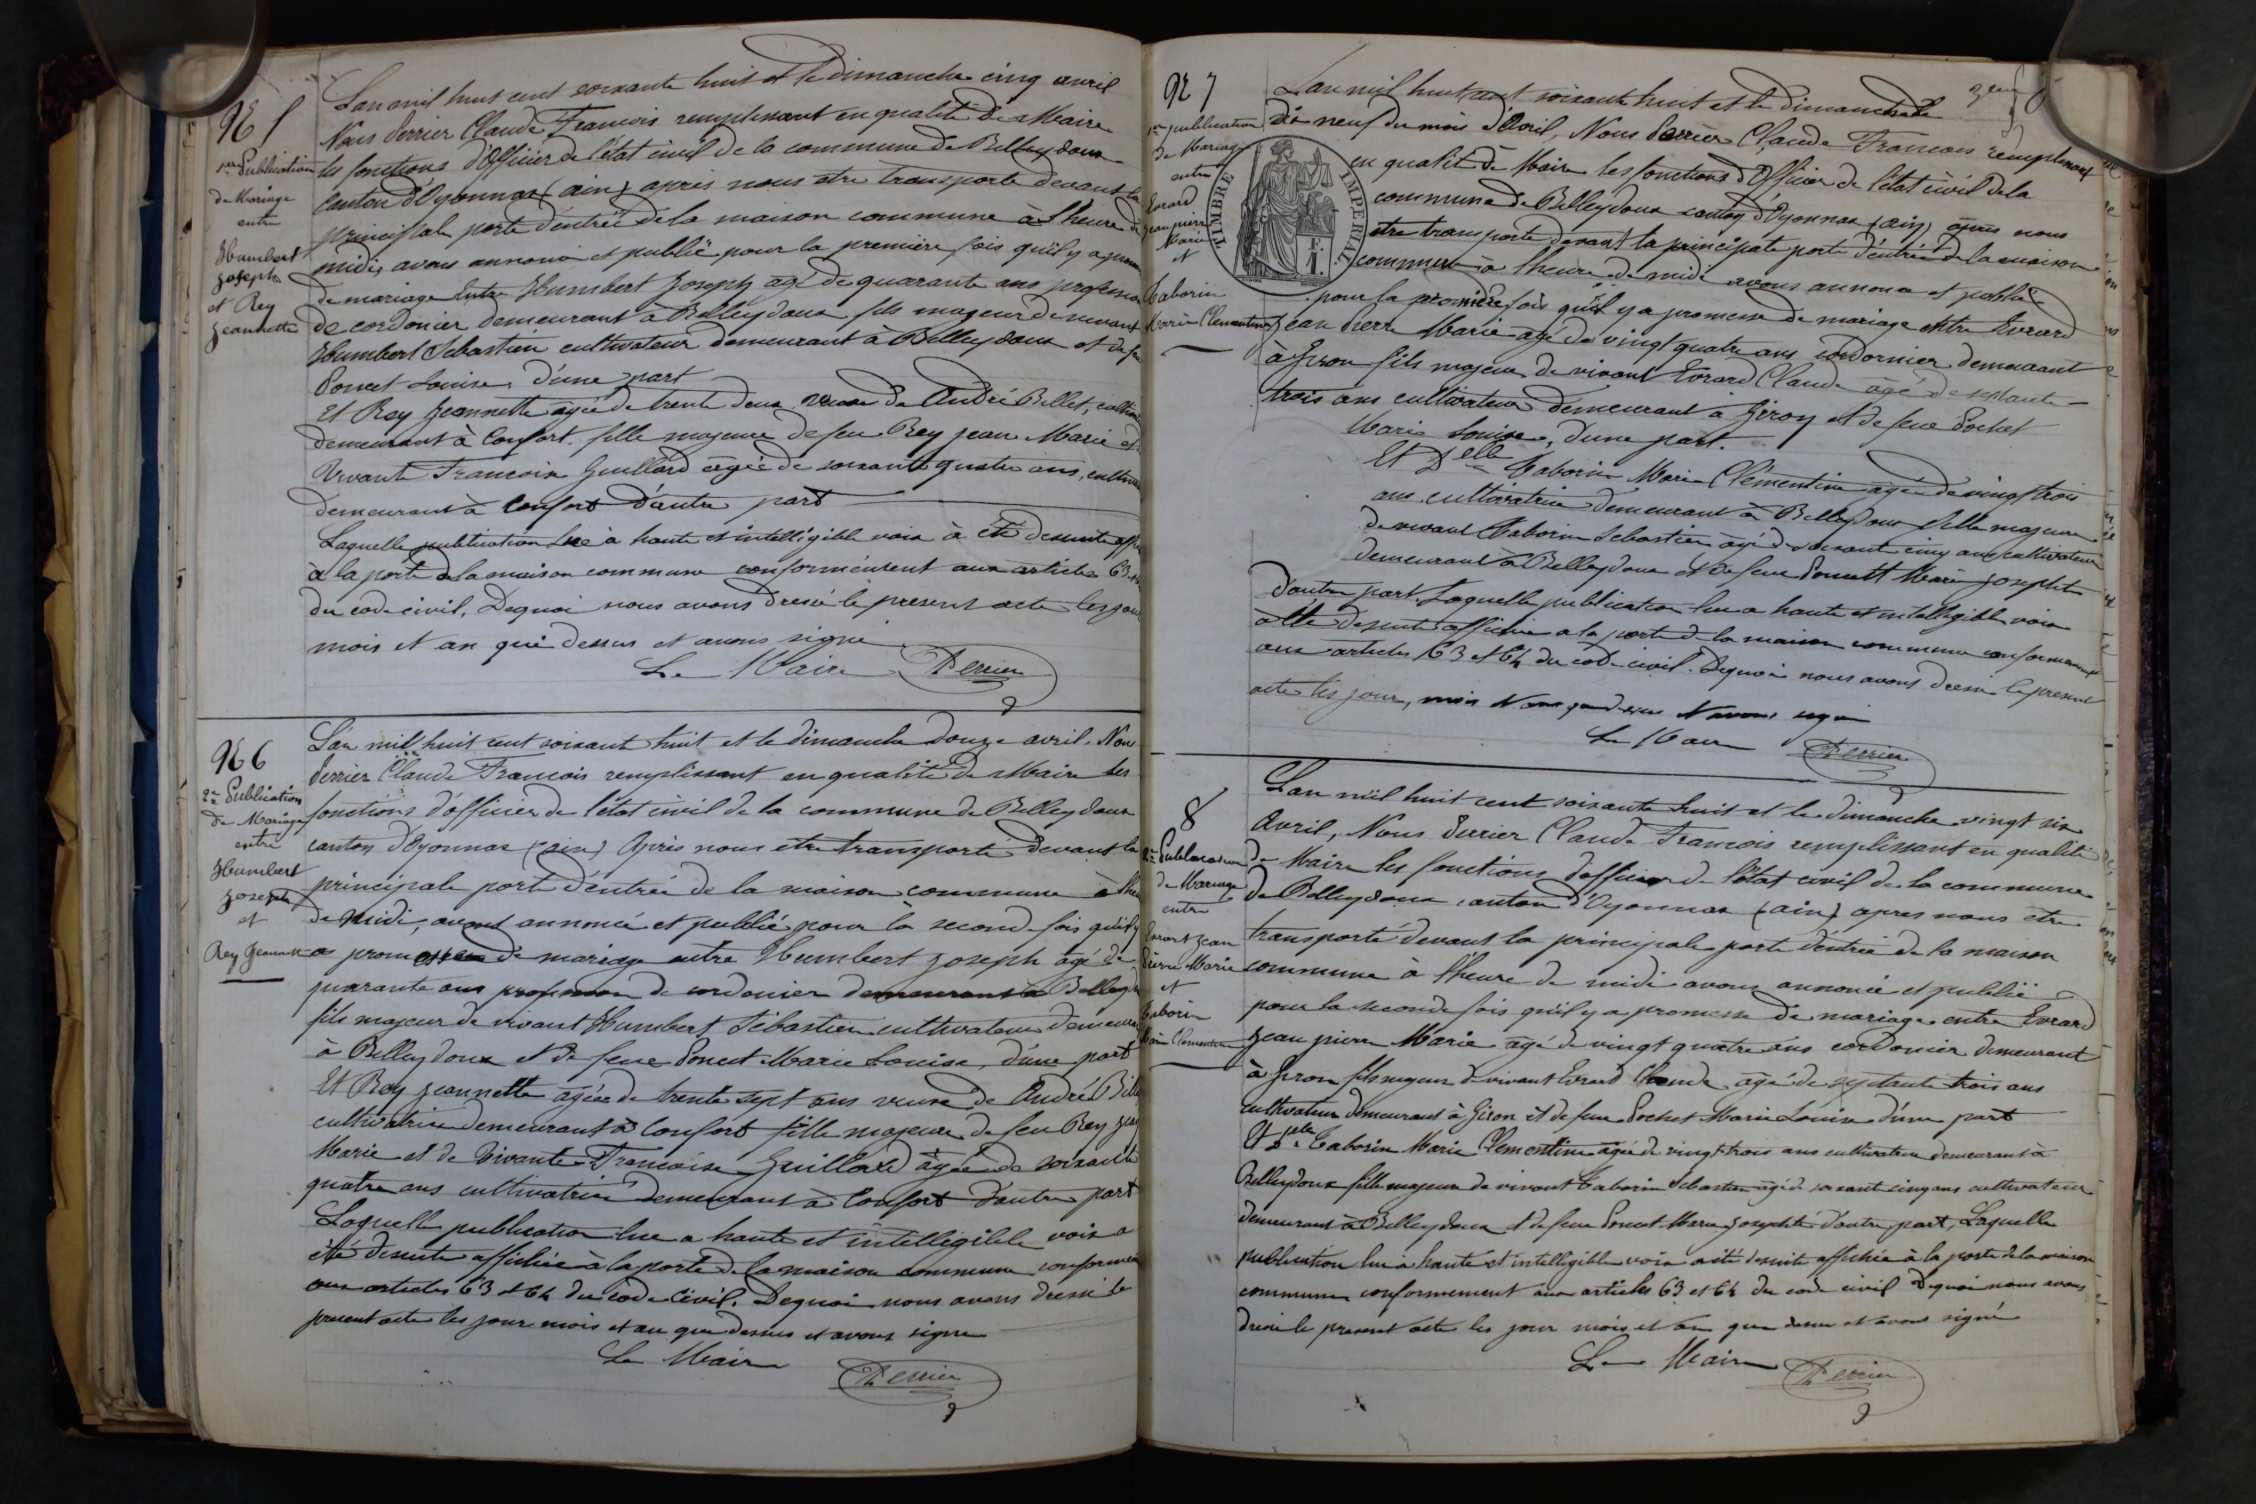 N° 5
1re Publication
de Mariage
entre
Humbert
Joseph
et Rey
Jeannette
L'an mil huit cent soixante huit et le dimanche cinq avril
Nous Perrier Claude Francois remplissant en qualité de Maire
les fonctions d'Officier de l'état civil de la commune de Belleydoux
canton d'Oyonnax (ain) après nous être transporté devant la
principale porte d'entrée de la maison commune à l'heure de
midi, avons annoncé et publié pour la première fois qu'il y a
de mariage entre Humbert Joseph agé de quarante ans profession
de cordonier demeurant à Belleydoux fils majeur de vivant
Humbert Sebastien cultivateur demeurant à Belleydoux et de feu
Poncet Louise, d'une part
Et Rey Jeannette agée de trente deux veuve de André Billet,
demeurant à Confort fille majeure de feu Rey Jean Marie et
vivante Francoise Guillard agée de soixante quatre ans,
demeurant à Confort d'autre part
Laquelle publication lue à haute et intelligible voix à été de suite
à la porte de la maison commune conformément aux articles 63
du code civil. Dequoi nous avons dressé le présent acte les jour
mois et an que dessus et avons signé
Le Maire Perrier
N° 6
2me Publication
de Mariage
entre
Humbert
Joseph
et
Rey Jeannette
L'an mil huit cent soixante huit et le dimanche douze avril. Nous
Perrier Claude Francois remplissant en qualité de Maire les
fonctions d'officier de l'état civil de la commune de Belleydoux
canton d'Oyonnax (ain) Après nous etre transporté devant la
principale porte d'entrée de la maison commune à l'heure
de midi, avons annoncé et publié pour la second fois qu'il y
a promesse de mariage entre Humbert Joseph agé de
quarante ans profession de cordonier demeurant à Belleydoux
fils majeur de vivant Humbert Sébastien cultivateur demeurant
à Belleydoux et de feue Poncet Marie Louise, d'une part
Et Rey Jeannette agée de trente sept ans veuve de André Billet
cultivatrice demeurant à Confort fille majeure de feu Rey Jean
Marie et de vivante Francoise Guillard agée de soixante
quatre ans cultivatrice demeurant à Confort d'autre part
Laquelle publication lue a haute et intelligible voix a
été desuite affichée à la porte de la maison commune conformément
aux articles 63 et 64 du code civil. Dequoi nous avons dressé le
present acte les jour mois et an que dessus et avons signé
Le Maire Perrier
N° 7
1re publication
de Mariage
entre
Evrard
Jean pierre
Marie
et
Taborin
Marie Clementine
TIMBRE IMPERIAL
L'an mil huit cent soixante huit et le dimanche
dix neuf du mois d'Avril, Nous Perrier Claude Francois remplissant
en qualité de Maire les fonctions d'Officier de l'état civil de la
commune de Belleydoux canton d'Oyonnax (ain) après nous
etre transporté devant la principale porte d'entrée de la maison
commune à l'heure de midi avons annoncé et publié
pour la première fois qu'il y a promesse de mariage entre Evrard
Jean Pierre Marie agé de vingt quatre ans cordornier demeurant
à Giron fils majeur de vivant Evrard Claude agé de septante
trois ans cultivateur demeurant à Giron et de feue Pochet
Marie Louise, d'une part.
Et Delle Taborin Marie Clémentine agée de vingt trois
ans cultivatrice demeurant à Belleydoux fille majeure
de vivant Taborin Sebastien agé de soixant cinq ans cultivateur
demeurant à Belleydoux et de feue Poncet Marie Josephte
d'autre part. Laquelle publication lue a haute et intelligible voix
a été desuite affichée a la porte de la maison commune conformément
aux articles 63 et 64 du code civil. Dequoi nous avons dressé le present
acte les jour, mois et an que dessus et avons signé
Le Maire Perrier
8
2me Publication
de Mariage
entre
Evrard Jean
Pierre Marie
et
Taborin
Marie Clementine
L'an mil huit cent soixante huit et le dimanche vingt six
Avril, Nous Perrier Claude Francois remplissant en qualité
de Maire les fonctions d'officier de l'état civil de la commune
de Belleydoux canton d'Oyonnax (ain) apres nous etre
transporté devant la principale porte d'entrée de la maison
commune à l'heure de midi avons annoncé et publié
pour la seconde fois qu'il y a promesse de mariage entre Evrard
Jean pierre Marie agé de vingt quatre ans cordonier demeurant
à Giron fils majeur de vivant Evrard Claude agé de septante trois ans
cultivateur demeurant à Giron et de feue Pochet Marie Louise d'une part
Et Delle Taborin Marie Clementine agée de vingt-trois ans cultivatrice demeurant à
Belleydoux fille majeure de vivant Taborin Sebastien agé de soixant cinq ans cultivateur
demeurant à Belleydoux et de feue Poncet Marie Josephte d'autre part, Laquelle
publication lue à haute et intelligible voix a été desuite affichée à la porte de la maison
commune conformement aux articles 63 et 64 du code civil Dequoi nous avons
dressé le present acte les jour mois et an que dessus et avons signé
Le Maire Perrier